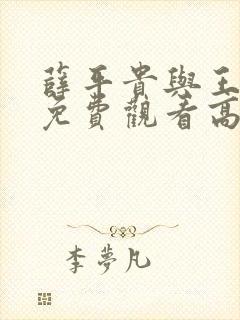 薛平貴與王
免費觀看高
李夢凡